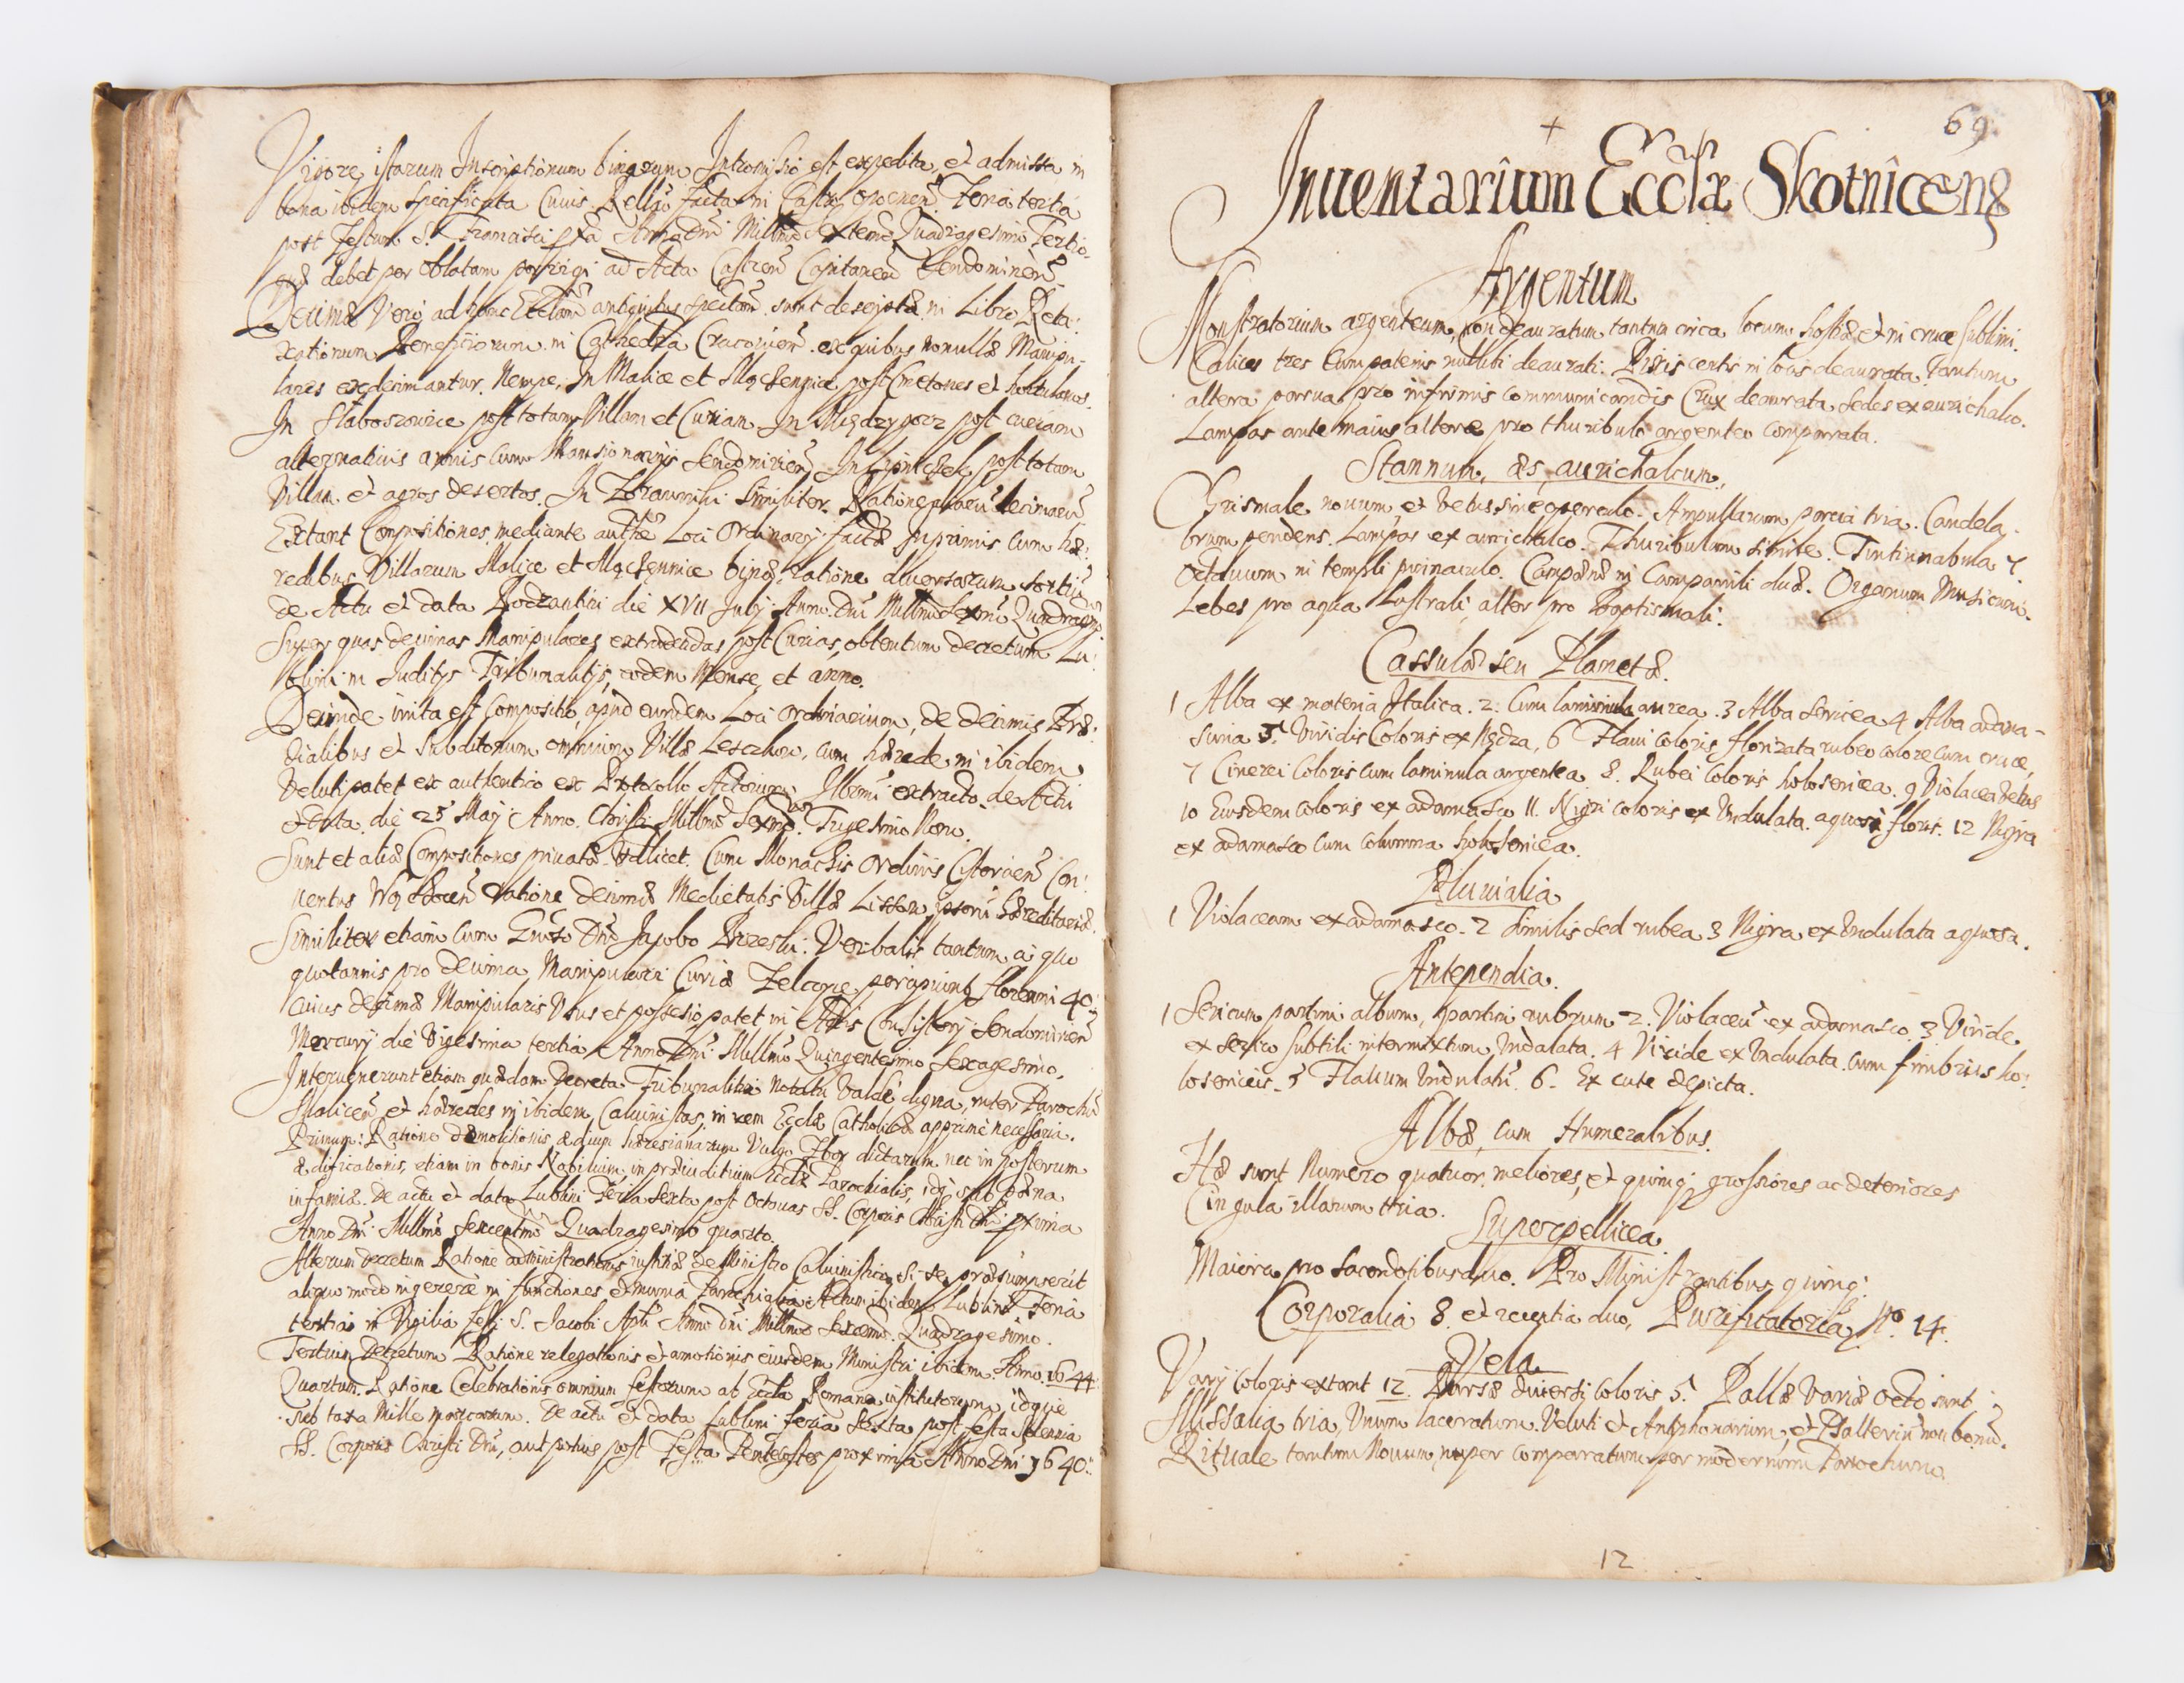 Vigore istarum Inscriptionum binarum Intromissio est expedita, et admissa in
bona ibidem specificata Cuius Rello facta in Castro Opocnen Feria tertia
post Festum S. Francisci Anno Dni Millmo Sexcmo Quadragesimo Tertio.
quæ debet per Oblatam porrigi ad Acta Castren Capitanea Sendomirien
Decimæ Vero ad hanc Ecclam antiquitus spectan. sunt descriptæ in Libro Reta:
xationum Beneficiorum in Cathedra Cracovien. ex quibus nonullæ Manipu:
lares exdecimantur. Nempe, In Malice et post Cmetones et hortulanos.
In Slaboszowice post totam Villam et Curiam. In Międzygorz post curiam
alternativis annis cum Mansionarijs Sendomirien, In Lipniczek post totam
Villam. et agros desertos. In similiter. Ratione decimarum
Extant Compositiones mediante authte Loci Ordinarij factæ Inprimis cum hæ:
redibus Villarum Malice et binæ, ratione diversarum sortiu,
de Actu et data Bodzantini die XVII Julij Anno Dni Millmo Sexcmo Quadragmo.
Super quas decimas Manipulares extradendas post Curias, obtentum decretum Lu:
blini in Judicijs Tribunalitijs, eodem Mense, et anno.
Deinde inita est Compositio, apud eundem Loci Ordinarium, de decimis Præ:
dialibus et Subditorum omnium Villæ Leszczkow, cum hærede in ibidem
Veluti patet ex authentico ex Protocollo Actorum Illmi extracto. de Actu
et data die 25 Maij Anno. Christi Millmo Sexmo. Trigesimo Nono.
Sunt et aliæ Compositiones privatæ. Videlicet. Cum Monachis Ordinis Cisterciem Con:
ventus Wąchocen ratione decimæ Medietatis Villæ Lissow ipsoru hæreditariæ.
Similiter etiam cum Gnoso Dno Jacobo : Verbalis tantum, a quo
quotannis pro decima Manipulari Curiæ percipiunt floreni 40:
cuius decimæ Manipularis Usus et possessio patet in Actis Consistorij Sendomirien
Mercurij die Vigesima tertia Anno Dni: Millmo Quingentesimo Sexagesimo.
Intervenerunt etiam quædam Decreta Tribunalitia Notatu Valde digna, inter Parochu
Malicen et hæredes in ibidem Calvinistas, in rem Ecclæ Catholicæ apprime necessaria.
Primum: Ratione demolitionis ædium hæresianarum Vulgo Zbor dictarum nec in posterum
ædificationis, etiam in bonis Nobilium, in præiuditium Ecclæ Parochialis, idq sub pœna
infamiæ. De actu et data Lublini Feria Sexta post Octavas SS. Corporis Christi Dni pxima
Anno Dni Millmo Sexcentmo Quadragesimo quarto.
Alterum decretum Ratione administrationis iustitiæ de Ministro Calvinistico, Si se præsumpserit
aliquo modo ingerere in functiones et munia Parochialia. Actum ibidem Lublini Feria
tertia in Vigilia festi S. Jacobi Apli Anno dni Millmo Sexcmo. Quadragesimo.
Tertium Decretum Ratione relegationis et amotionis eiusdem Ministri ibidem Anno. 1644
Quartum. Ratione Celebrationis omnium festorum ab Eccla Romana institutorum, idque
sub taxa Mille marcarum. De actu et data Lublini feria Sexta post festa Solennia
SS. Corporis Christi Dni, aut potius post Festa Pentecostes proxima Anno Dni 1640.
69.
+
Inuentarium Ecclæ Skotnicens
Argentum
Monstratorium argenteum, non deauratum tantum circa locum hostiæ et in cruce sublimi.
Calices tres cum patenis intus deaurati. Pixis certis in locis deaurata tantum
altera parva pro infirmis communicandis Crux deaurata, sedes ex aurichalco.
Lampas ante maius altare pro thuribulo argenteo comparata.
Stannum, æs aurichalcum.
Chrismale novum et vetus sine operculo. Ampullarum paria tria. Candela.
brum pendens. Lampas ex aurichalco. Thuribulum simile. Tintinnabula 7.
Octavum in templi pinnaculo. Campanæ in Campanili duæ. Organum Musicum.
Lebes pro aqua lustrali, alter pro Baptismali.
Cassulæ seu Planetæ.
1 Alba ex materia Italica. 2. Cum laminula aurea. 3 Alba Sericea 4 Alba adama-
scina 5. Viridis Coloris ex 6 Flavi coloris, florizata rubeo colore cum cruce,
7 Cinerei Coloris cum laminula argentea. 8. Rubei coloris holosericea. 9 Violacea vetus
10 Eiusdem coloris ex adamasco 11. Nigri coloris ex Undulata. aquosi floris. 12 Nigra
ex adamasco cum columna holosericea.
Pluvialia
1 Violaceum ex adamasco. 2 Similis sed rubea 3 Nigra ex Undulata aquosa.
Antependia.
1 Sericum partim album, partim rubrum 2. Violaceu ex adamasco. 3. Viride
ex serico subtili intermixtum Undalata. 4 Viride ex Undulata cum fimbriis ho:
losericeis. 5 Flavum Undulatu. 6. Ex cute depicta.
Albæ, cum Humeralibus.
Hæ sunt Numero quatuor, meliores, et quinq, grossiores ac deteriores
Cingula illarum tria.
Superpellicea.
Maiora pro Sacerdotibus duo. Pro Ministrantibus quinq:
Corporalia 8. et recentia duo, Purificatoria No 14.
Vela
Varij Coloris extant 12. Bursæ diversi coloris 5. Pallæ variæ octo sunt.
Missalia tria, Unum laceratum. Veluti et Antiphonarium, et Psalteriu non bonu.
Rituale tantum Novum, nuper comparatum per modernum Parochum.
12